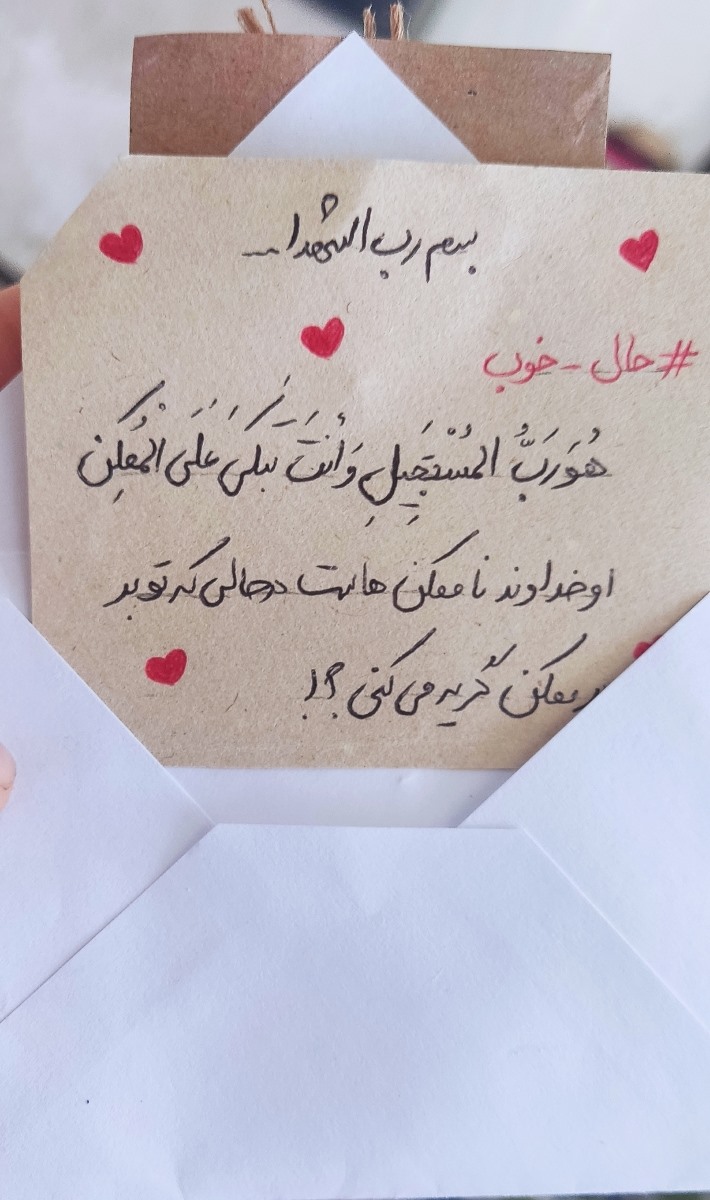 بسم رب الشهدا...
#حال-خوب
هُوَ رَبُّ المُسْتَحِیلِ وَ أَنْتَ تَبْکی عَلَی المُمکِن
او خداوند ناممکن هاست درحالی که تو بر
بر ممکن گریه می کنی ؟!